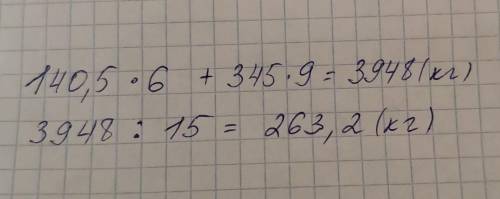 140,5 · 6 + 345 · 9 = 3948 (кг)
3948 : 15 = 263,2 (кг)